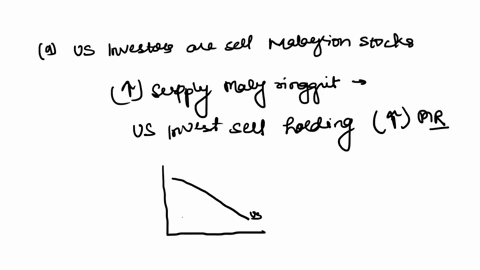 (a) US Investors are sell Malaysian stocks
(↑) supply Maly ringgit →
US Invest sell holding (↑) MR
US